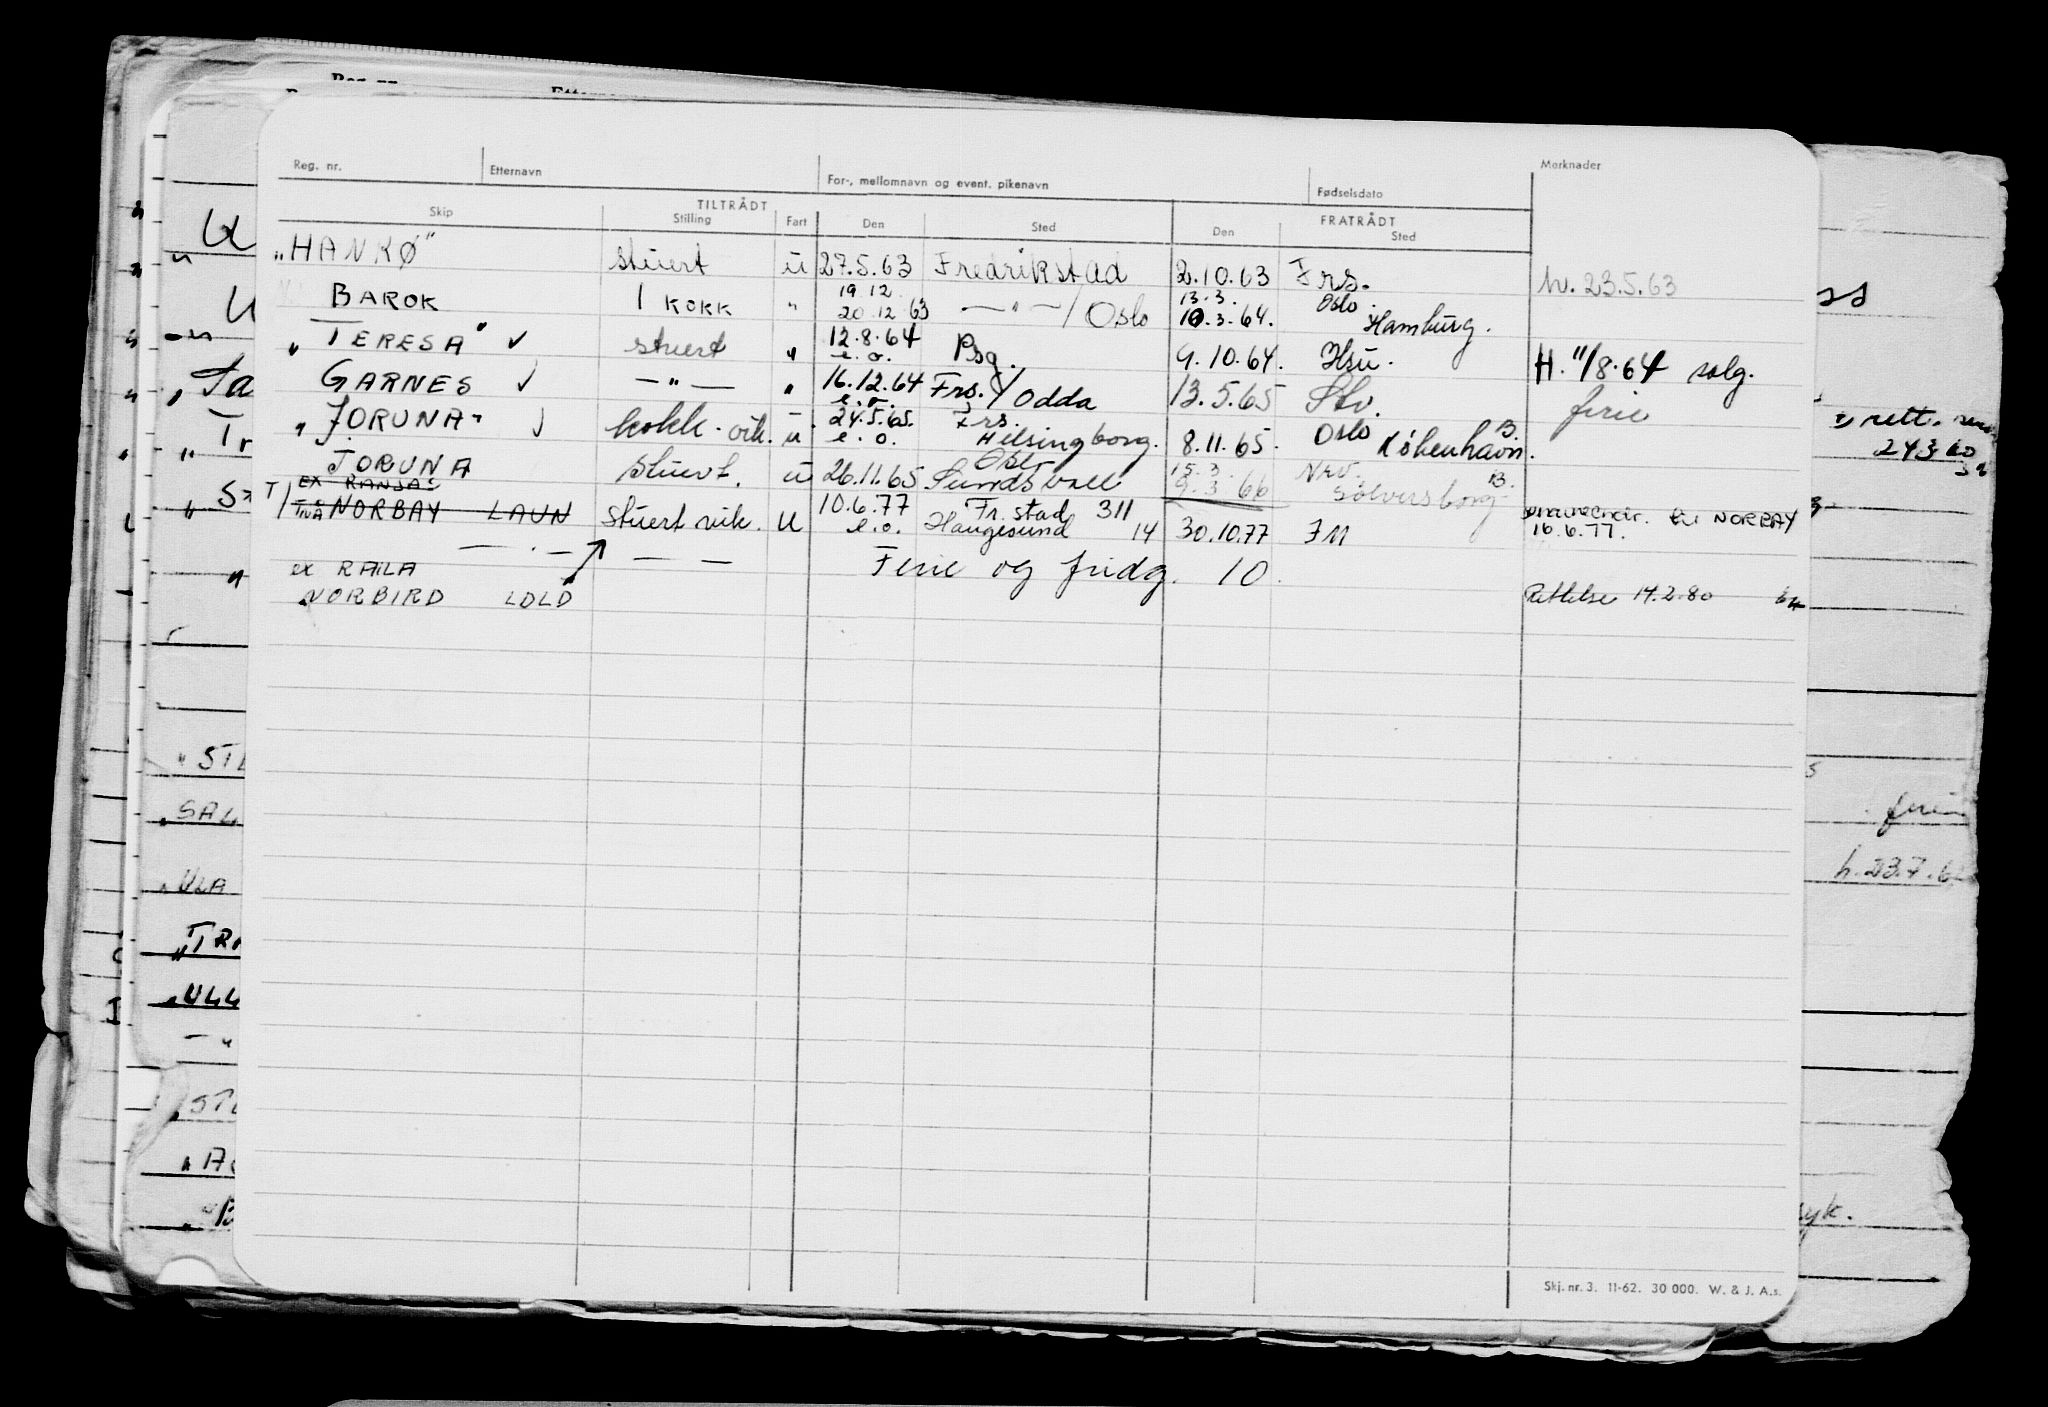 Reg. nr. Etternavn For-, mellomnavn og event. pikenavn Fødselsdato Merknader
TILTRÅDT FRATRÅDT
Skip Stilling Fart Den Sted Den Sted
"HANKØ" stuert u 27.5.63 Fredrikstad 2.10.63 Frs. h. 23.5.63
19.12. 13.3. Oslo.
BAROK 1 KOKK " 20.12 63 — " — / Oslo 10.3.64. Hamburg.
"TERESA" ✓ stuert " 12.8.64 e.o. Psg. 9.10.64. Hsu. H. 11/8.64 salg.
" GARNES ✓ — " — " 16.12.64 e.o. Frs. / Odda 13.5.65 Stv. ferie
" JORUNA" ✓ kokk. vik. u 24.5.65. e.o. Frs. Helsingborg. 8.11.65. Oslo B. København.
Osl 15.3. Nrv. B.
JORUNA stuert. u 26.11.65 Sundsvall 9.3.66 Sölvesborg
EX RANJAS
T/ NORBAY LAUN stuert vik. U 10.6.77 e.o. Fr.stad 311 Haugesund 14 30.10.77 FM NORBAY 16.6.77.
— . — — — Ferie og fridg. 10.
ex RAILA
NORBIRD LDLD Rettelse 14.2.80
Skj. nr. 3. 11-62. 30 000. W. & J. A.s.
rett.
24.3.60
h. 23.7.6
syk.